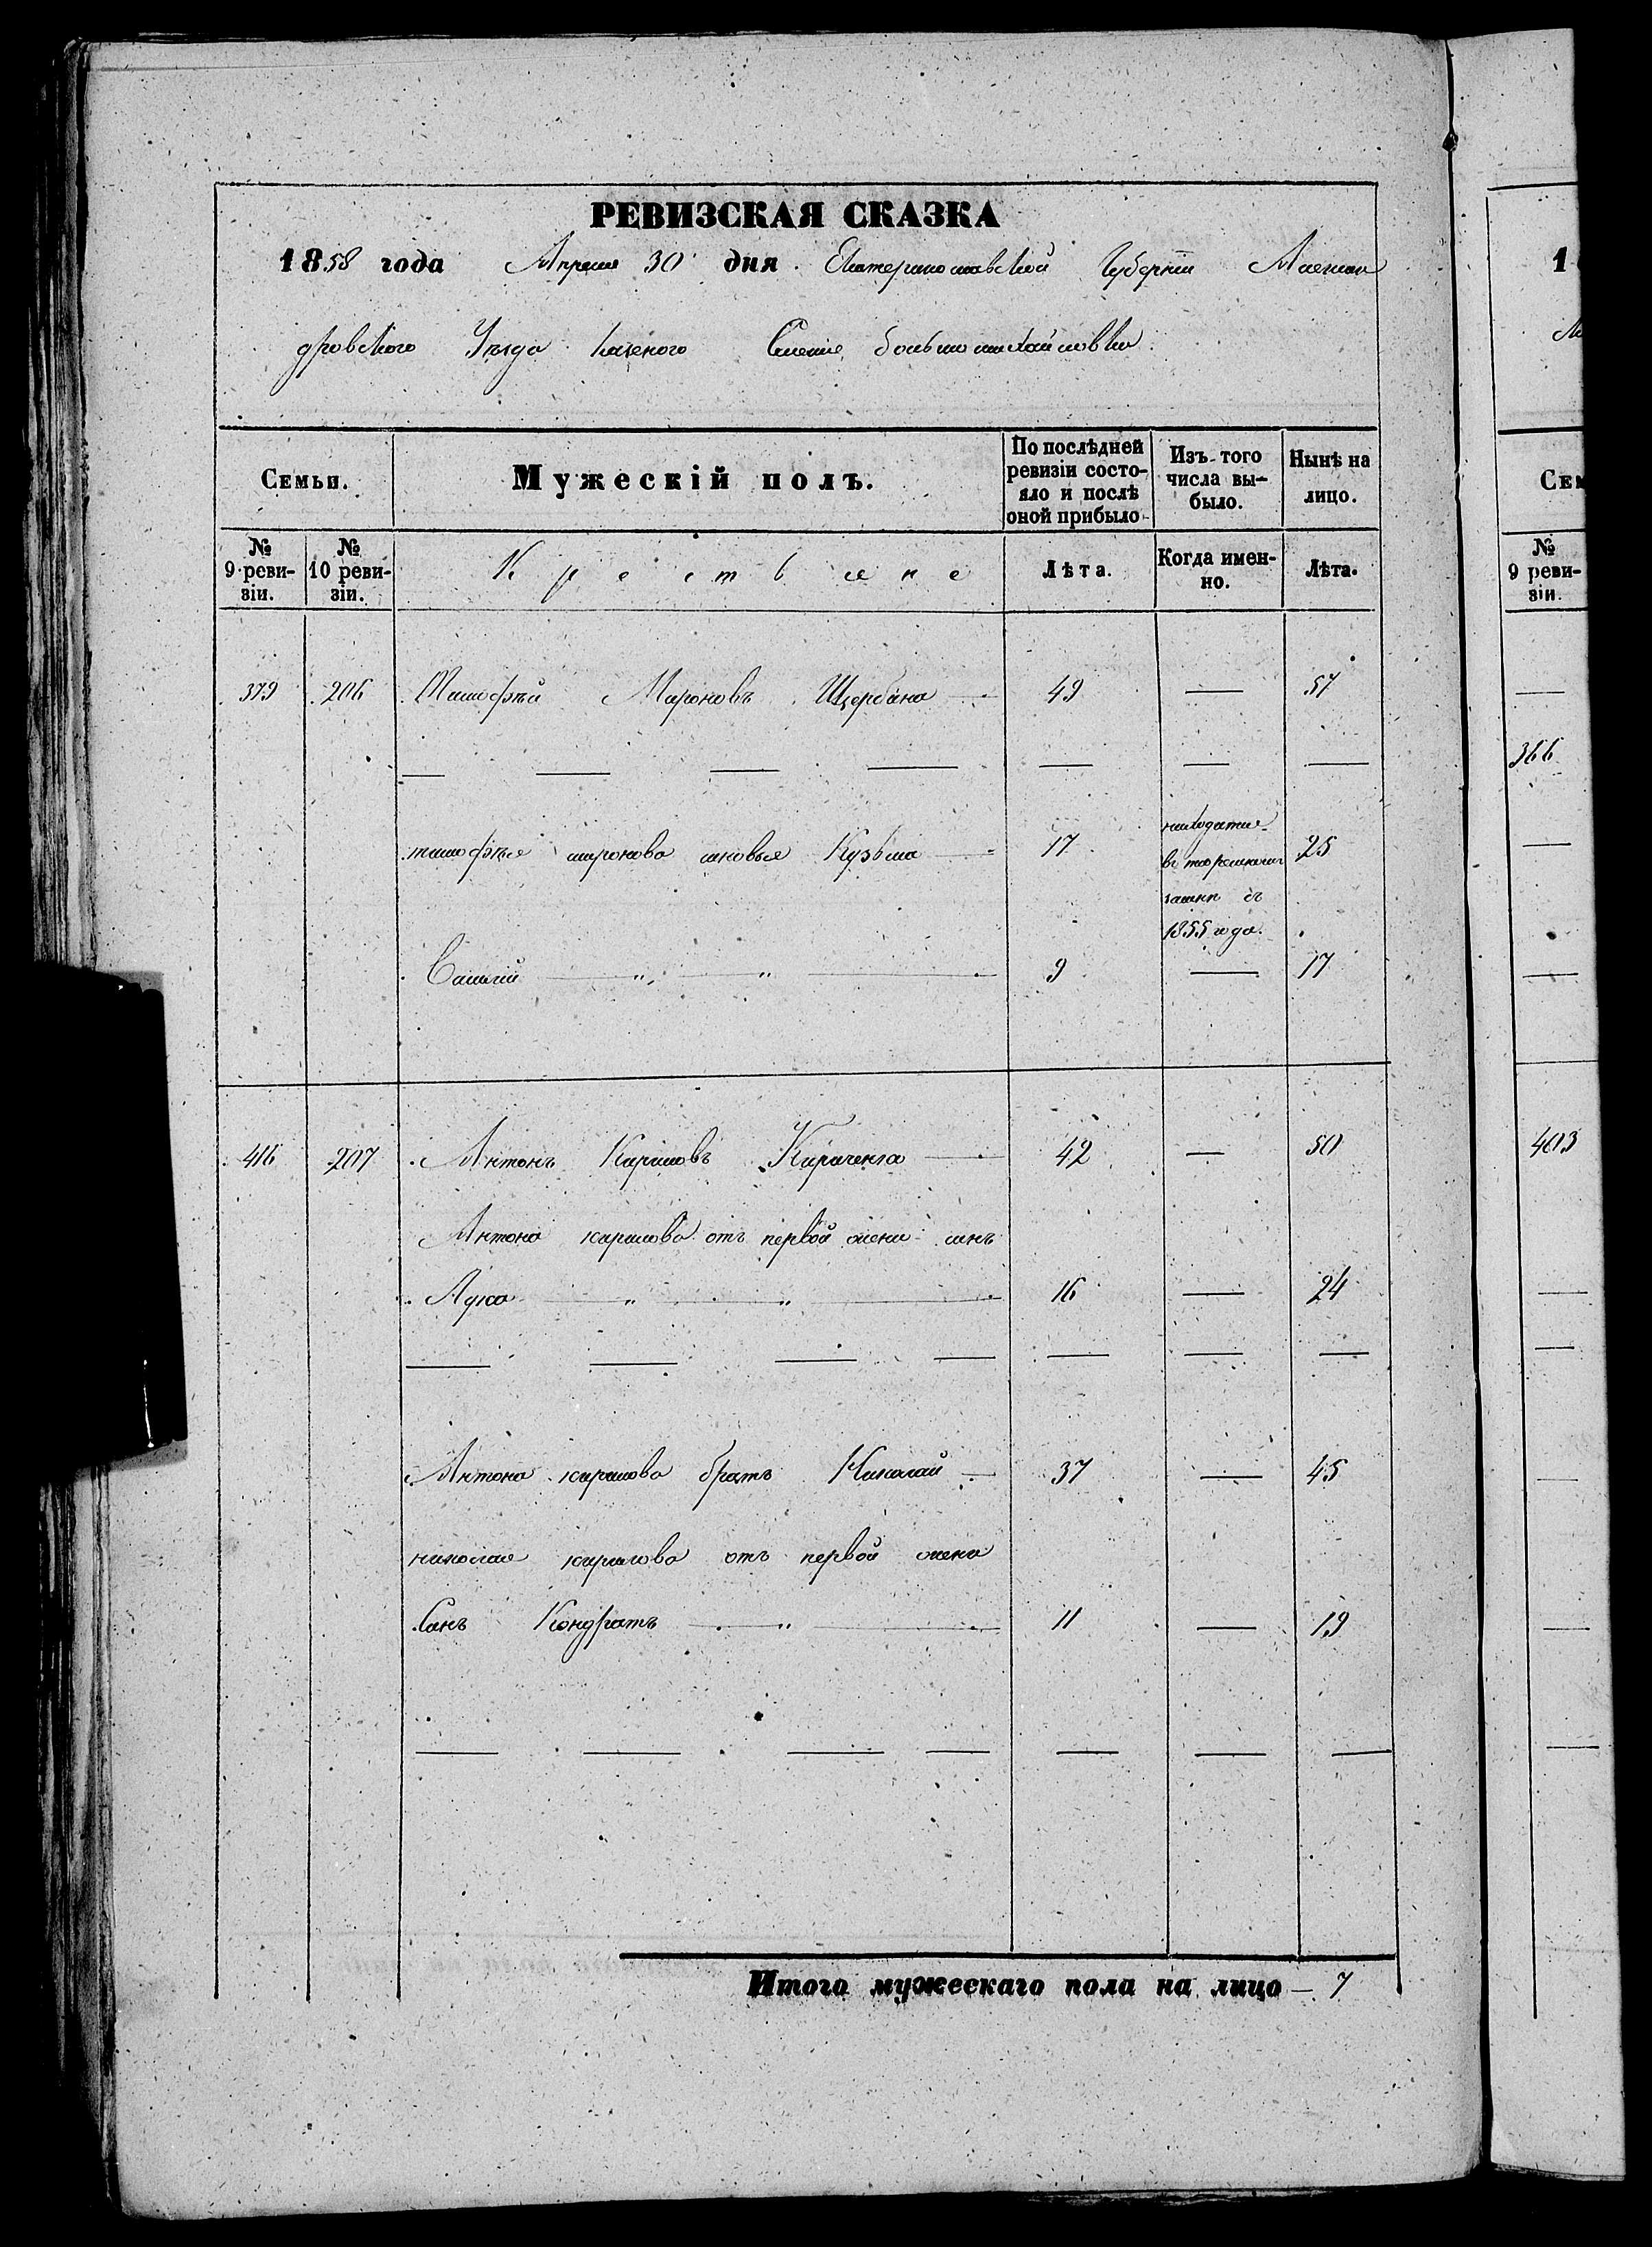 РЕВИЗСКАЯ СКАЗКА
1858 года Апреля 30 дня Екатеринославской Губерніи Алексан
дровского Уезда Казеного Селение большомихайловки
Семьи.
Мужескій полъ.
По послѣдней ревизіи состо-
яло и послѣ
оной прибыло
Изъ того
числа вы-
было.
Нынѣ на
лицо.
№
9 реви-
зіи.
№
10 реви-
зіи.
Крестьяне
Лѣта.
Когда имен-
но.
Лѣта.
379 206 Тимофѣй Мироновъ Щербина 49 — 57
тимофѣя миронова сновья Кузьма 17 25
находится
въ
с
1855 года.
Василий " " 9 — 17
416 207 Антонъ Кириловъ Кириченко 42 — 50
Антона кирилова отъ первой жени синъ
Лука " " 16 — 24
Антона кирилова братъ Николай 37 — 45
николая кирилова отъ первой жени
Синъ Кондратъ " 11 — 19
Итого мужескаго пола на лицо — 7
1
Сем
№
9 реви-
зіи.
366
403